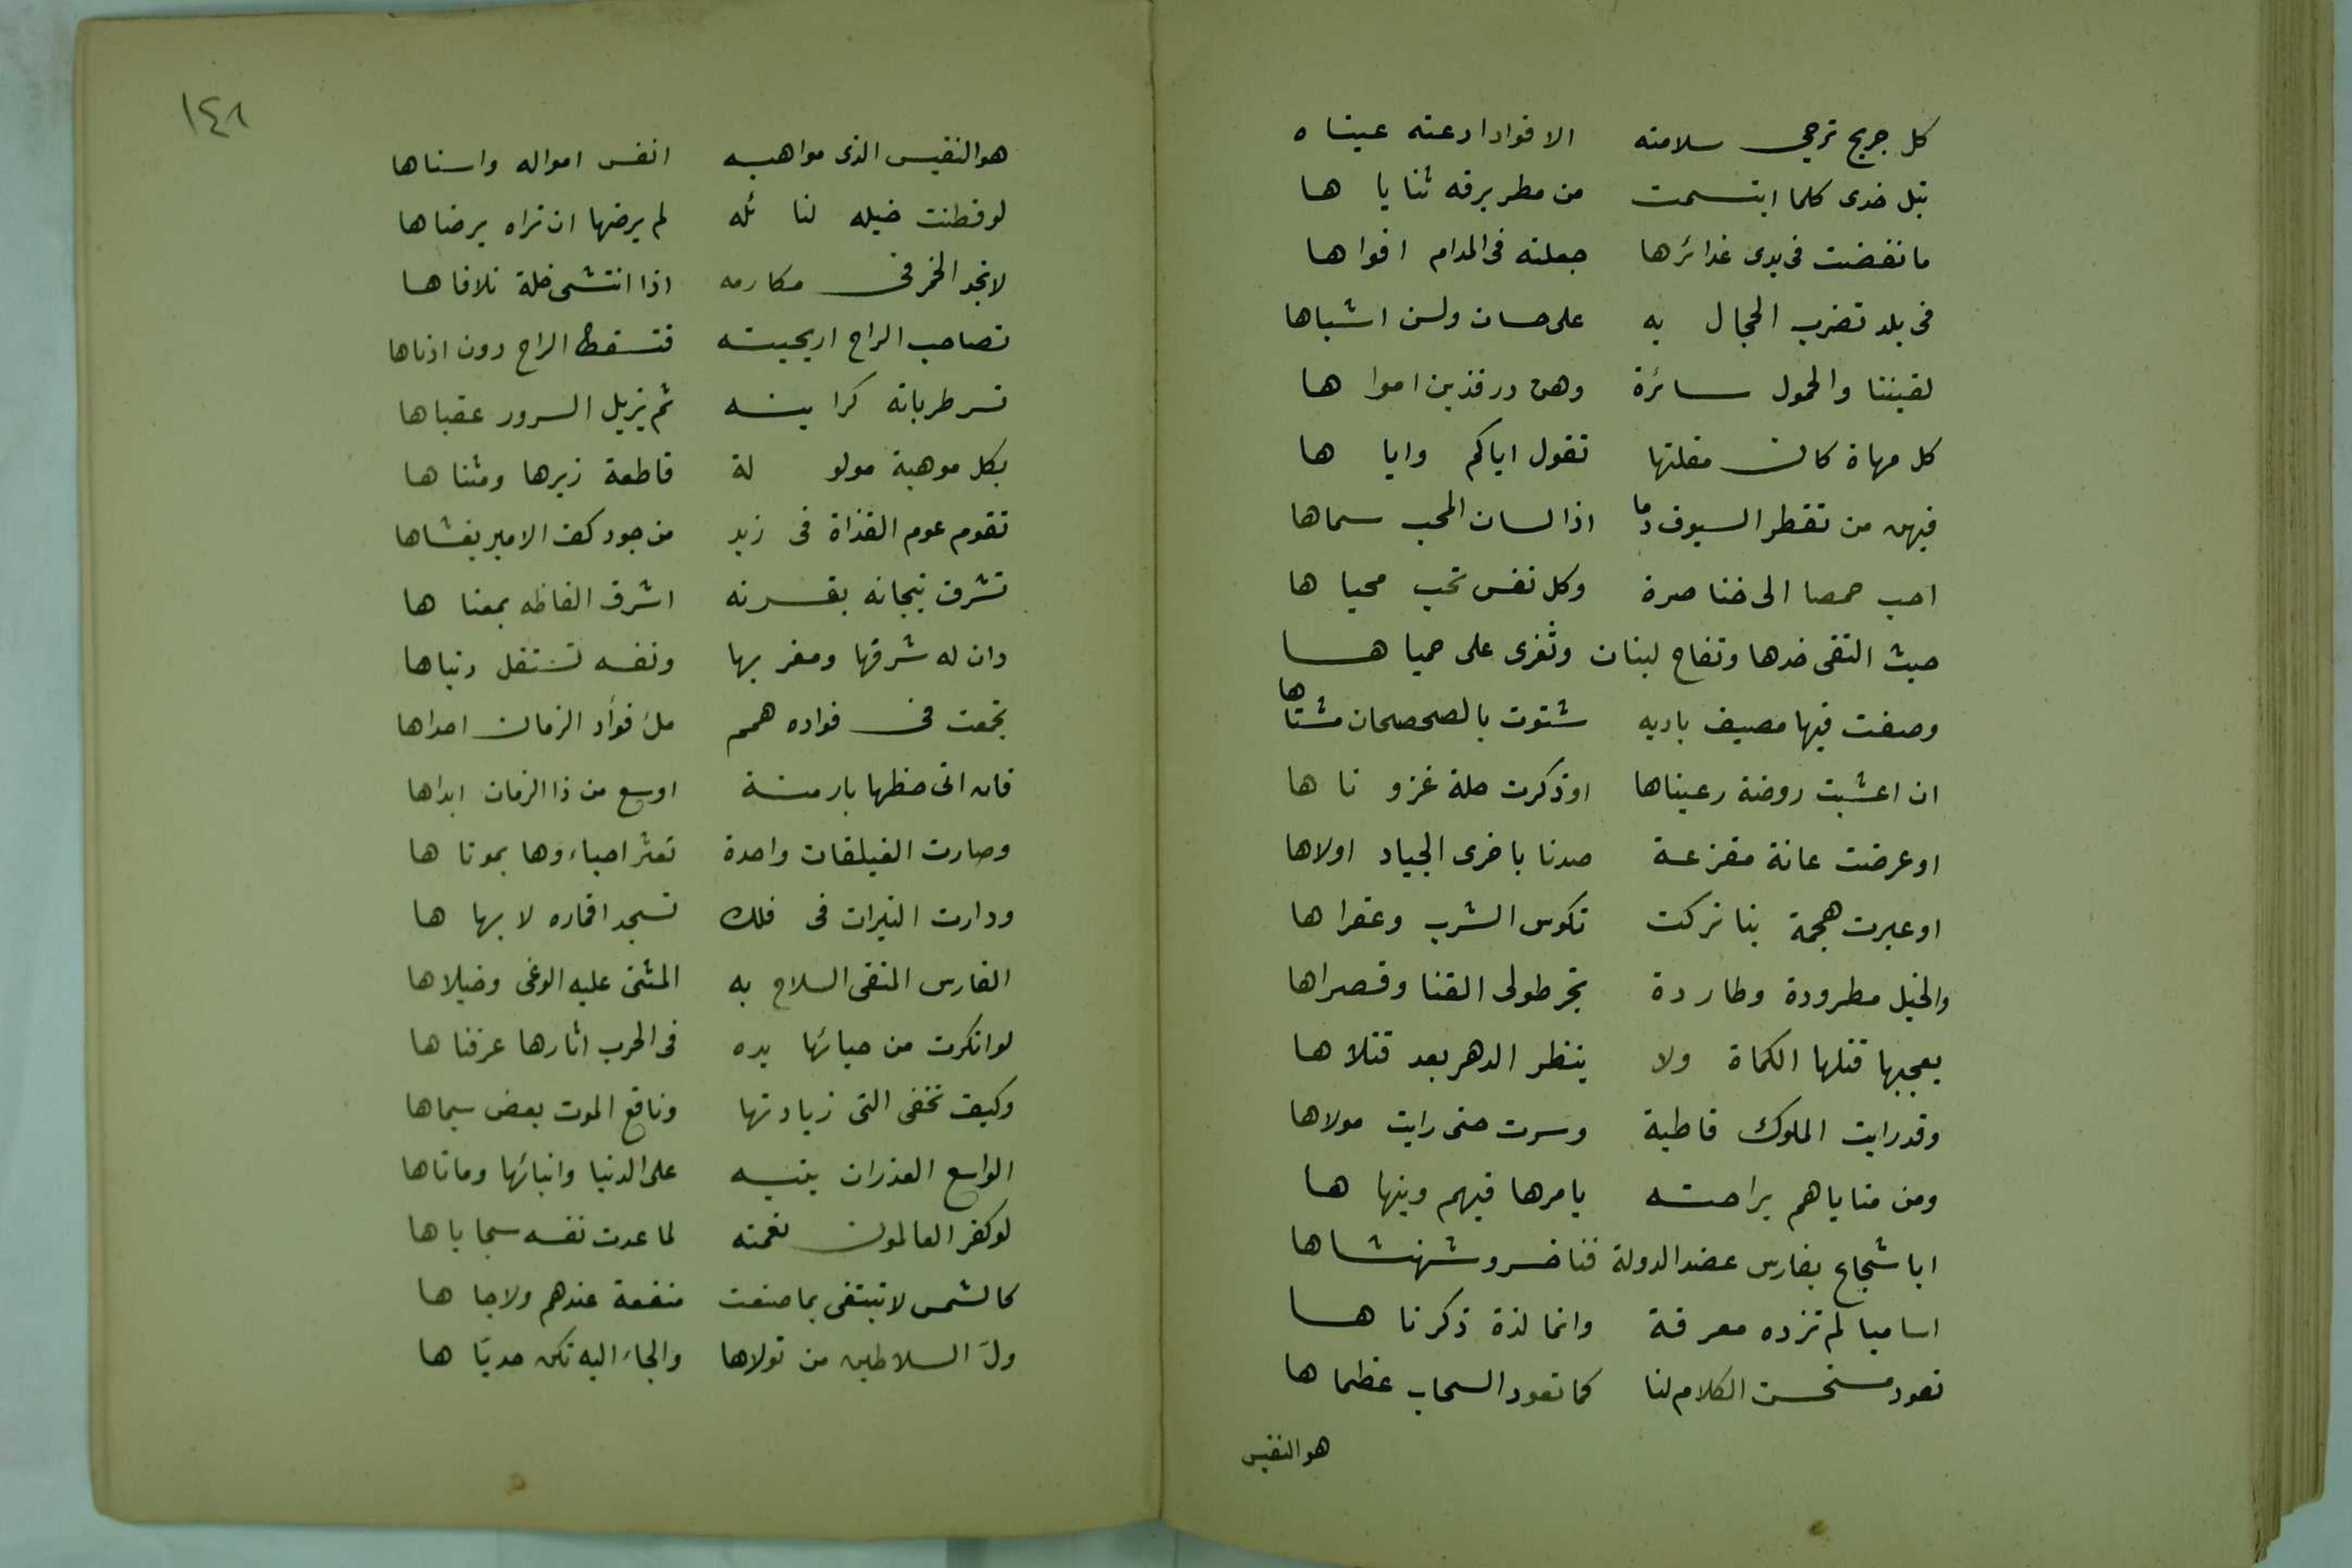 كل جريح ترجى سلامته الا فوادا دعته عيناه
تبل خدى كلما ابتسمت من مطر برقه ثناياها
ما نفضت فى يدى غدائرها جعلته فى المدام افواها
فى بلد تضرب الحجال به على حسان ولسن اشباها
لقيننا والحمول سائرة وهن در فذبن امواها
كل مهاة كان مقلتها تقول اياكم واياها
فيهن من تقطر السيوف دما اذا لسان المحب سماها
احب حمصا الى خناصرة وكل نفس تحب محياها
حيث التقى خدها وتفاح لبنان وثغرى على حمياها
وصفت فيها مصيف باديه شتوت بالصحصحان مشتاها
ان اعشبت روضة رعيناها او ذكرت حلة غزوناها
او عرضت عانة مقزعة صدنا باخرى الجياد اولاها
او عبرت هجمة بنا تركت تكوس الشرب وعقراها
والخيل مطرودة وطاردة تجر طولى القنا وقصراها
يعجبها قتلها الكماة ولا ينظر الدهر بعد قتلاها
وقد رايت الملوك قاطبة وسرت حتى رايت مولاها
ومن مناياهم براحته يامرها فيهم وينهاها
ابا شجاع بفارس عضد الدولة فناخسرو شهنشاها
اساميا لم تزده معرفة وانما لذة ذكرناها
تعود مستحسن الكلام لنا كما تعود السحاب عظماها
هو النفيس
١٤٨
هو النفيس الذى مواهبه انفس امواله واسناها
لو فطنت خيله لنائله لم يرضها ان تراه يرضاها
لا تجد الخمر فى مكارمه اذا انتشى خلة تلافاها
تصاحب الراح اريحيته فتسقط الراح دون ادناها
تسر طرباته كراينه ثم يزيل السرور عقباها
بكل موهبة مولولة قاطعة زيرها ومثناها
تقوم عوم القذاة فى زبد من جود كف الامير يغشاها
تشرق تيجانه بغرته اشرق الفاظه بمعناها
دان له شرقها ومغربها ونفسه تستقل دنياها
تجمعت فى فواده همم ملء فوأد الزمان احداها
فان اتى حظها بازمنة اوسع من ذا الزمان ابداها
وصارت الفيلقان واحدة تعثر احياءوها بموتاها
ودارت النيرات فى فلك تسجد اقماره لابهاها
الفارس المتقى السلاح به المثنى عليه الوغى وخيلاها
لو انكرت من حيائها يده فى الحرب اثارها عرفناها
وكيف تخفى التى زيادتها وناقع الموت بعض سيماها
الواسع العذران يتيه على الدنيا وابنائها وماتاها
لو كفر العالمون نعمته لما عدت نفسه سجاياها
كالشمس لا تبتغى بما صنعت منفعة عندهم ولا جاها
ول السلاطين من تولاها والجاء اليه تكن حديّاها